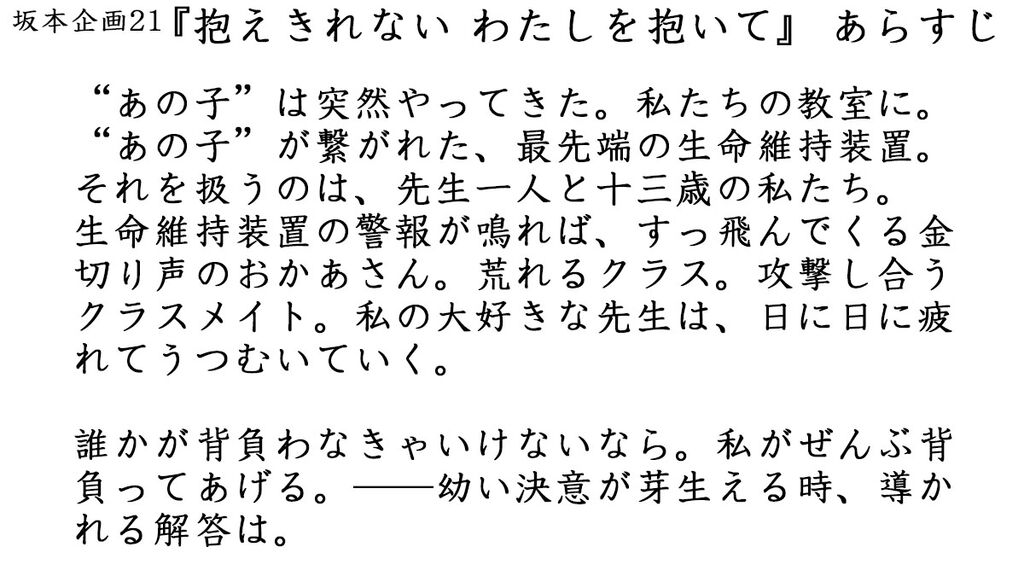 坂本企画21『抱えきれない わたしを抱いて』 あらすじ
“あの子”は突然やってきた。私たちの教室に。
“あの子”が繋がれた、最先端の生命維持装置。
それを扱うのは、先生一人と十三歳の私たち。
生命維持装置の警報が鳴れば、すっ飛んでくる金
切り声のおかあさん。荒れるクラス。攻撃し合う
クラスメイト。私の大好きな先生は、日に日に疲
れてうつむいていく。
誰かが背負わなきゃいけないなら。私がぜんぶ背
負ってあげる。――幼い決意が芽生える時、導か
れる解答は。